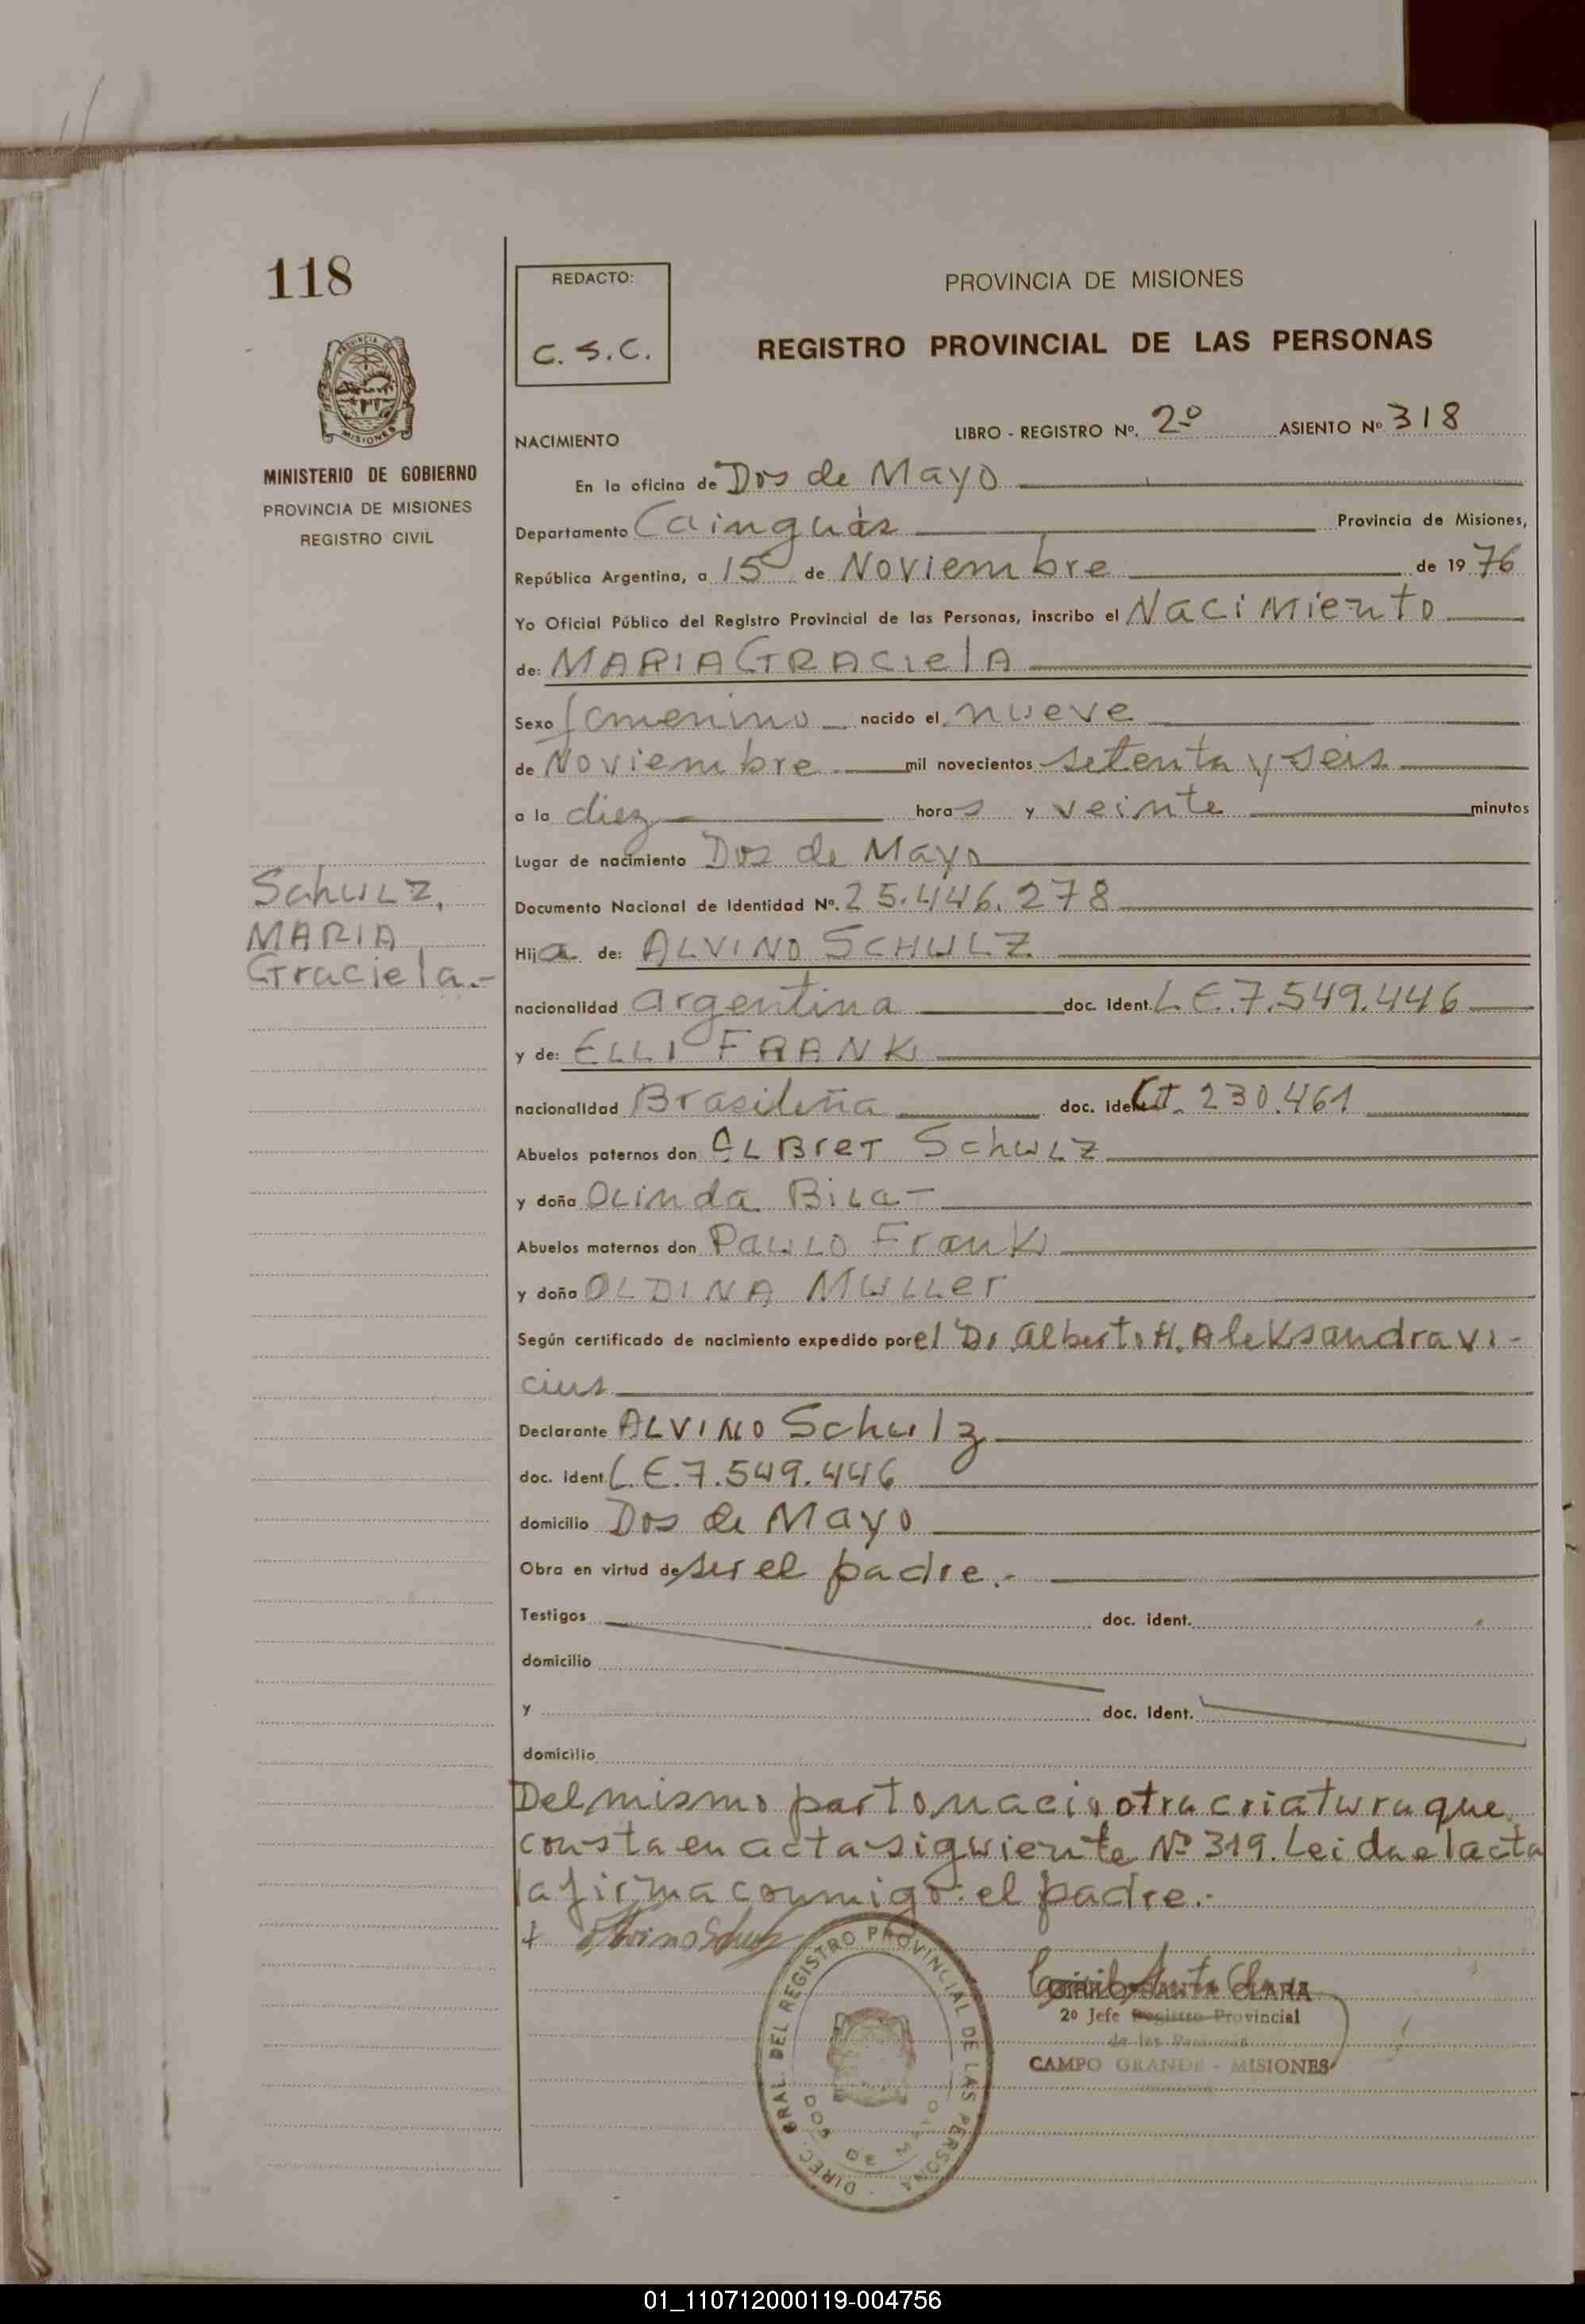 118
PROVINCIA DE MISIONES
MINISTERIO DE GOBIERNO
PROVINCIA DE MISIONES
REGISTRO CIVIL
Schulz,
MARIA
Graciela.-
REDACTO:
C. S. C.
PROVINCIA DE MISIONES
REGISTRO PROVINCIAL DE LAS PERSONAS
NACIMIENTO
LIBRO - REGISTRO Nº. 2º ASIENTO Nº 318
En la oficina de Dos de Mayo
Departamento Cainguás Provincia de Misiones,
República Argentina, a 15 de Noviembre de 1976
Yo Oficial Público del Registro Provincial de las Personas, inscribo el Nacimiento
de: MARIA GRACIelA
Sexo femenino nacido el nueve
de Noviembre mil novecientos setenta y seis
a la diez horas y veinte minutos
Lugar de nacimiento Dos de Mayo
Documento Nacional de Identidad Nº. 25.446.278
Hija de: ALVINO SCHULZ
nacionalidad argentina doc. ident. L.E. 7.549.446
y de: ELLI FRANK
nacionalidad Brasileña doc. ident. 230.461
Abuelos paternos don ALBreT Schulz
y doña OLinda BiLa-
Abuelos maternos don PauLo Frank
y doña OLDINA MuLLer
Según certificado de nacimiento expedido por el Dr Alberto H. Aleksandravi-
cius
Declarante ALVINO Schulz
doc. ident. L.E. 7.549.446
domicilio Dos de Mayo
Obra en virtud de ser el padre.-
Testigos doc. ident.
domicilio
y doc. ident.
domicilio
Del mismo parto nacio otra criatura que
consta en acta siguiente Nº 319. Leida el acta
la firma conmigo el padre.-
+ Alvino Schulz
DIREC. GRAL. DEL REGISTRO PROVINCIAL DE LAS PERSONAS
DOS DE MAYO
SANTA CLARA
2º Jefe Registro Provincial
de las Personas
CAMPO GRANDE - MISIONES
01_110712000119-004756